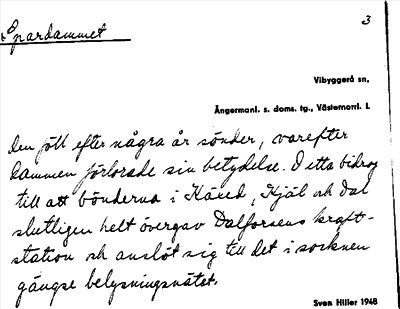 3
Spardammet
Vibyggerå sn,
Ångermanl. s. doms. tg., Västernorrl. l.
den fött efter några år sönder, varefter
dammen förlorade sin betydelse. Detta bidrog
till att bönderna i Häred, Kjäl och Dal
slutligen helt övergav Dalforsens kraft-
station och anslöt sig till det i socknen
gängse belysningsnätet.
Sven Hiller 1948